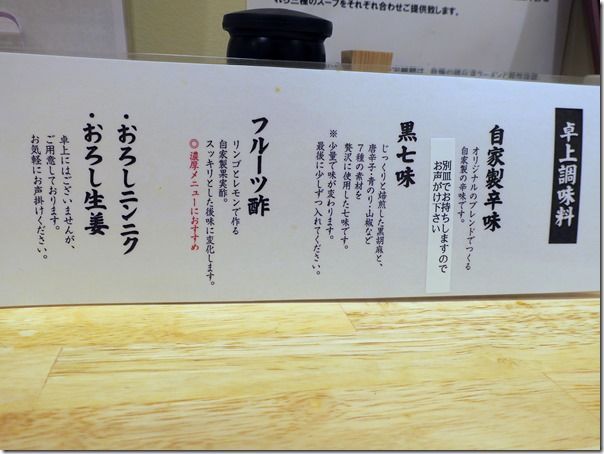 れら三種のスープをそれぞれ合わせご提供致します。
卓上調味料
自家製辛味
オリジナルのブレンドでつくる
自家製の辛味です。
別皿でお持ちしますので
お声がけ下さい
黒七味
じっくりと焙煎した黒胡麻と、
唐辛子・青のり・山椒など
7種の素材を
贅沢に使用した七味です。
※少量で味が変わります。
最後に少しずつ入れてください。
フルーツ酢
リンゴとレモンで作る
自家製果実酢。
スッキリとした後味に変化します。
◎濃厚メニューにおすすめ
・おろしニンニク
・おろし生姜
卓上にはございませんが、
ご用意しております。
お気軽にお声掛けください。